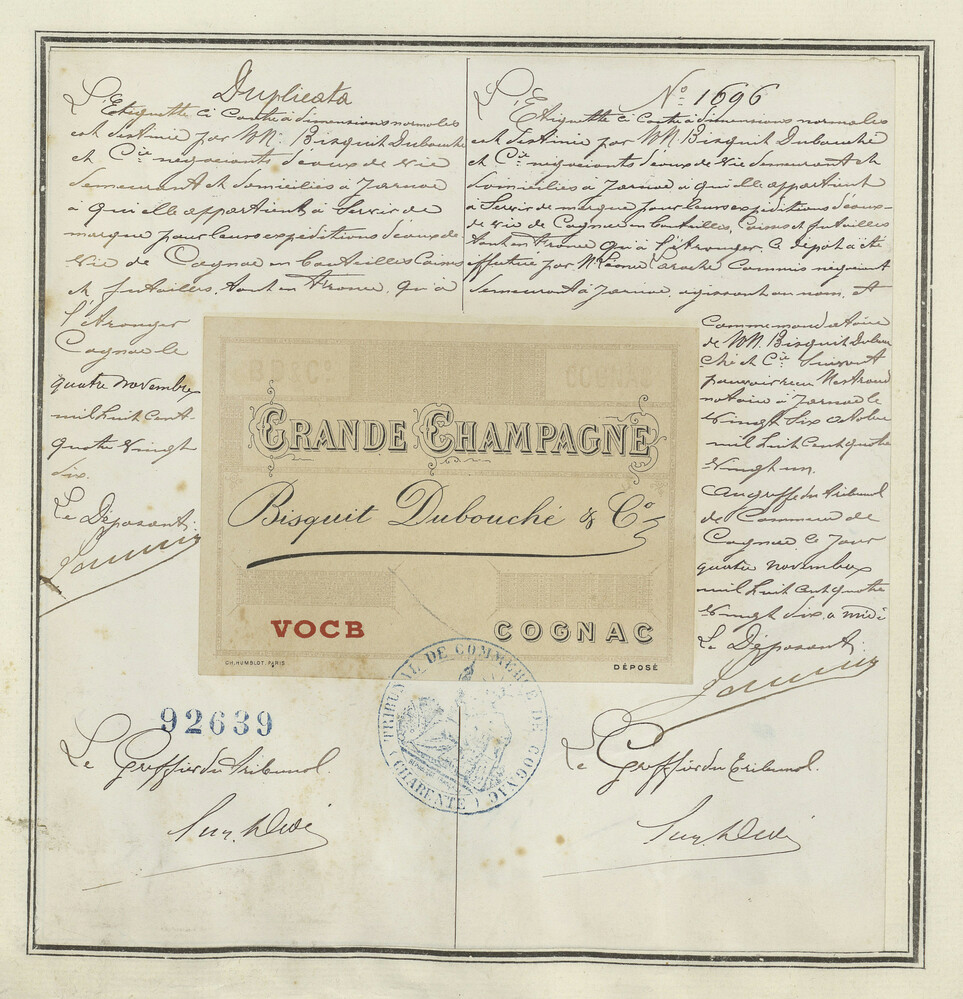 Duplicata
L'Etiquette Ci Contre à dimensions normales
est destinée par MM. Bisquit Dubouché
et Cie négociants d'eaux de vie
demeurant et domiciliés à Jarnac
à qui elle appartient à Servir de
marque pour leurs expéditions d'eaux de
vie de Cognac en Bouteilles Caisses
et futailles, tant en France, qu'à
l'étranger
Cognac le
quatre novembre
mil huit cent
quatre vingt
six.
Le Déposant:
No 1696
L'Etiquette Ci Contre à dimensions normales
est destinée par MM. Bisquit Dubouché
et Cie négociants d'eaux de vie demeurant et
domiciliés à Jarnac à qui elle appartient
à Servir de marque pour leurs expéditions d'eaux-
de vie de Cognac en Bouteilles, Caisses et futailles
tant en France qu'à l'étranger. Ce dépôt a été
effectué par Mr Léonce Laroche Commis négociant
demeurant à Jarnac, agissant au nom, et
comme mandataire
de MM. Bisquit Dubou
ché et Cie Suivant
pouvoir reçu
notaire à Jarnac le
vingt six octobre
mil huit cent quatre
vingt un.
au greffe du tribunal
de Commerce de
Cognac, le jour
quatre novembre
mil huit cent quatre
vingt six à midi
Le Déposant:
GRANDE CHAMPAGNE
Bisquit Dubouché & Co
VOCB
COGNAC
CH. HUMBLOT, PARIS
DÉPOSÉ
TRIBUNAL DE COMMERCE DE COGNAC
(CHARENTE)
92639
Le Greffier du Tribunal.
Le Greffier du Tribunal.